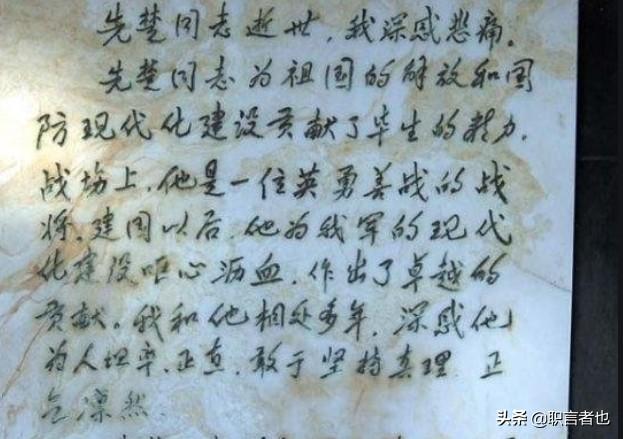 先楚同志逝世，我深感悲痛。
先楚同志为祖国的解放和国
防现代化建设贡献了毕生的精力。
战场上，他是一位英勇善战的战
将，建国以后，他为我军的现代
化建设呕心沥血，作出了卓越的
贡献。我和他相处多年，深感他
为人坦率、正直，敢于坚持真理，正
气凛然。
头条 @职言者也